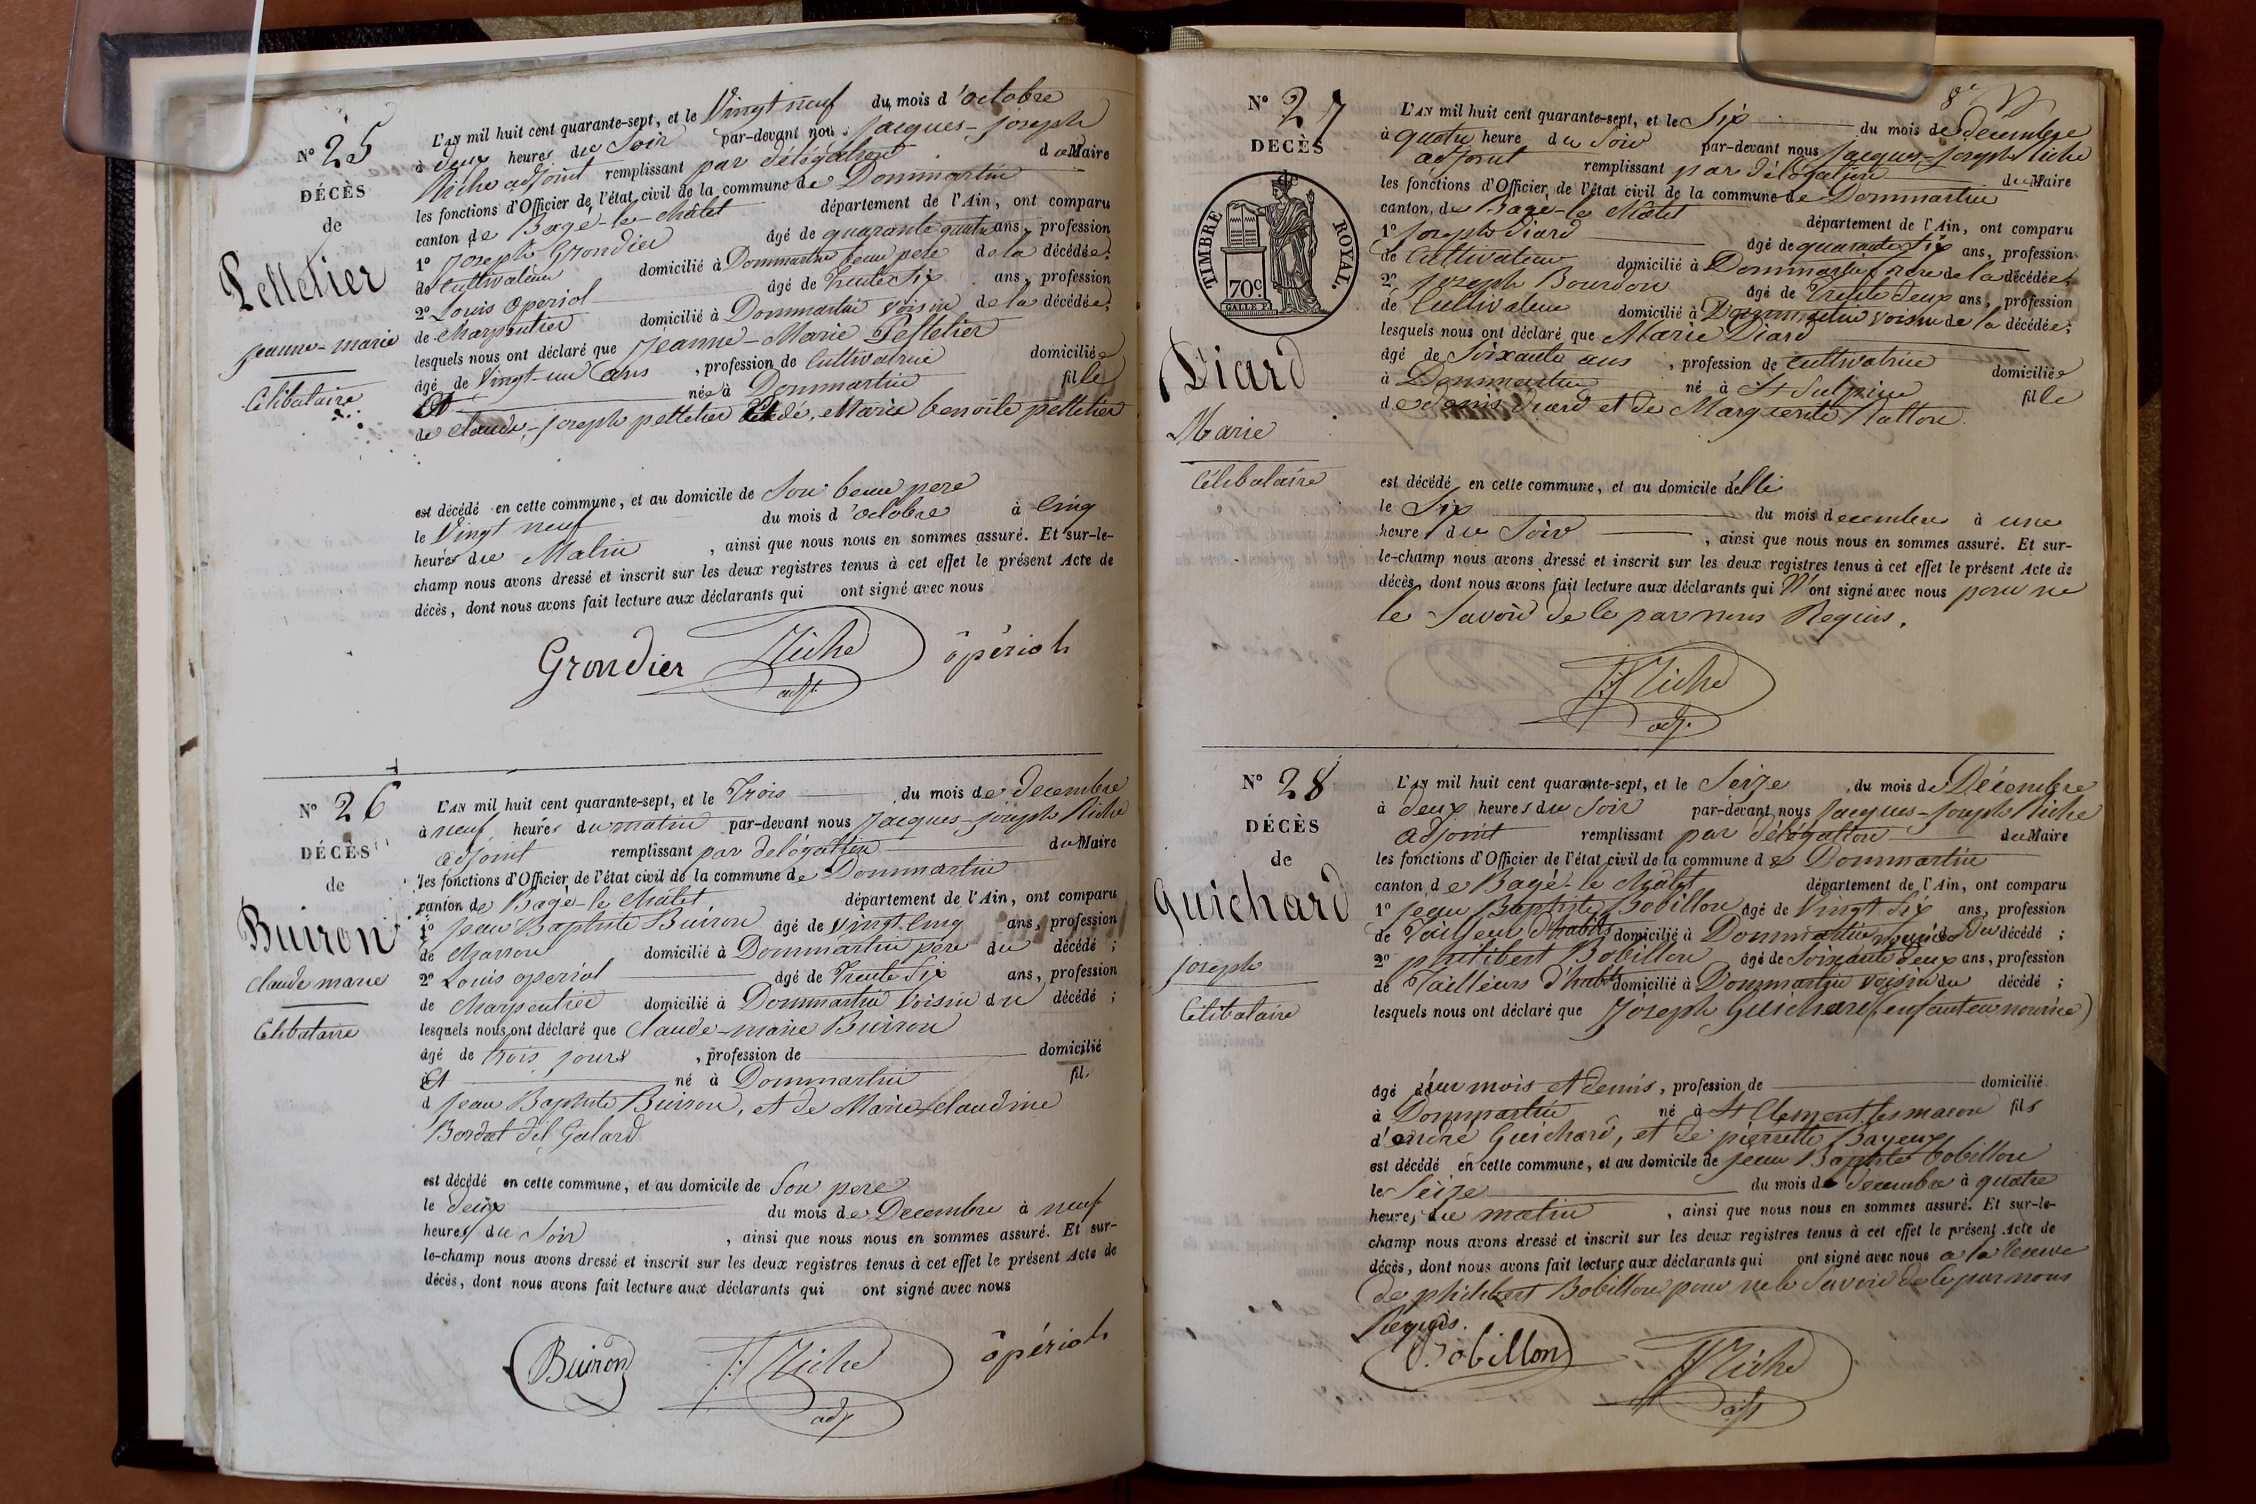 N° 25
DÉCÈS
de
Pelletier
jeanne-marie
Célibataire
L'AN mil huit cent quarante-sept, et le Vingt neuf du mois d'octobre
à deux heures du Soir par-devant nous jacques-joseph
Riche adjoint remplissant par délégation du Maire
les fonctions d'Officier de l'état civil de la commune de Dommartin
canton de Bagé-le-châtel département de l'Ain, ont comparu
1° joseph Grondier âgé de quarante quatre ans, profession
de Cultivateur domicilié à Dommartin beau pere de la décédée;
2° Louis operiol âgé de trente Six ans, profession
de charpentier domicilié à Dommartin voisin de la décédée;
lesquels nous ont déclaré que jeanne-Marie Pelletier
âgé de vingt-un ans, profession de Cultivatrice domiciliée
née à Dommartin fille
de claude-joseph pelletier et de Marie benoite pelletier
est décédé en cette commune, et au domicile de Son beau pere
le Vingt neuf du mois d'octobre à Cinq
heures du Matin, ainsi que nous nous en sommes assuré. Et sur-le-
champ nous avons dressé et inscrit sur les deux registres tenus à cet effet le présent Acte de
décès, dont nous avons fait lecture aux déclarants qui ont signé avec nous
Grondier Riche opériol
adjt
N° 26
DÉCÈS
de
Buiron
claude marie
Célibataire
L'AN mil huit cent quarante-sept, et le Trois du mois de decembre
à neuf heures du matin par-devant nous jacques-joseph Riche
adjoint remplissant par délégation du Maire
les fonctions d'Officier de l'état civil de la commune de Dommartin
canton de Bagé-le châtel département de l'Ain, ont comparu
1° jean Baptiste Buiron âgé de vingt-cinq ans, profession
de charron domicilié à Dommartin père du décédé;
2° Louis operiol âgé de trente Six ans, profession
de charpentier domicilié à Dommartin voisin du décédé;
lesquels nous ont déclaré que claude-marie Buiron
âgé de trois jours, profession de domicilié
à né à Dommartin fils
d jean Baptiste Buiron, et de Marie claudine
Bordat dit Galard
est décédé en cette commune, et au domicile de Son pere
le deux du mois de Decembre à neuf
heures du Soir, ainsi que nous nous en sommes assuré. Et sur-
le-champ nous avons dressé et inscrit sur les deux registres tenus à cet effet le présent Acte de
décès, dont nous avons fait lecture aux déclarants qui ont signé avec nous
Buiron Riche opériol
adj
8e
N° 27
DECÈS
de
TIMBRE ROYAL
70c
Diard
Marie
Célibataire
L'AN mil huit cent quarante-sept, et le Six du mois de décembre
à quatre heure du Soir par-devant nous jacques-joseph Riche
adjoint remplissant par délégation du Maire
les fonctions d'Officier de l'état civil de la commune de Dommartin
canton de Bagé-le Châtel département de l'Ain, ont comparu
1° joseph Diard âgé de quarante Six ans, profession
de Cultivateur domicilié à Dommartin frere de la décédée;
2° joseph Bourdon âgé de Trente deux ans, profession
de Cultivateur domicilié à Dommartin voisin de la décédée;
lesquels nous ont déclaré que Marie Diard
âgé de Soixante ans, profession de cultivatrice domiciliée
à Dommartin né à St Sulpice fille
de denis Diard et de Marguerite
est décédé en cette commune, et au domicile d'elle
le Six du mois decembre à une
heure du Soir, ainsi que nous nous en sommes assuré. Et sur-
le-champ nous avons dressé et inscrit sur les deux registres tenus à cet effet le présent Acte de
décès, dont nous avons fait lecture aux déclarants qui N'ont signé avec nous pour ne
le Savoir de ce par nous Requis.
Riche
adj.
N° 28
DÉCÈS
de
Guichard
joseph
Célibataire
L'AN mil huit cent quarante-sept, et le Seize du mois de Décembre
à deux heures du Soir par-devant nous jacques-joseph Riche
adjoint remplissant par délégation du Maire
les fonctions d'Officier de l'état civil de la commune de Dommartin
canton de Bagé-le châtel département de l'Ain, ont comparu
1° jean Baptiste Bobillon âgé de Vingt Six ans, profession
de Tailleur d'habits domicilié à Dommartin du décédé;
2° philibert Bobillon âgé de Soixante deux ans, profession
de Tailleurs d'habits domicilié à Dommartin voisin du décédé;
lesquels nous ont déclaré que joseph Guichard (enfant en nourice)
âgé d'un mois et demis, profession de domicilié
à Dommartin né à St Clement les macon fils
d'andré Guichard, et de pierrette Bayeux
est décédé en cette commune, et au domicile de jean Baptiste bobillon
le Seize du mois de décembre à quatre
heures du matin, ainsi que nous nous en sommes assuré. Et sur-le-
champ nous avons dressé et inscrit sur les deux registres tenus à cet effet le présent Acte de
décès, dont nous avons fait lecture aux déclarants qui ont signé avec nous a la reserve
de philibert Bobillon pour ne le Savoir de ce par nous
Requis.
Bobillon Riche
adjt